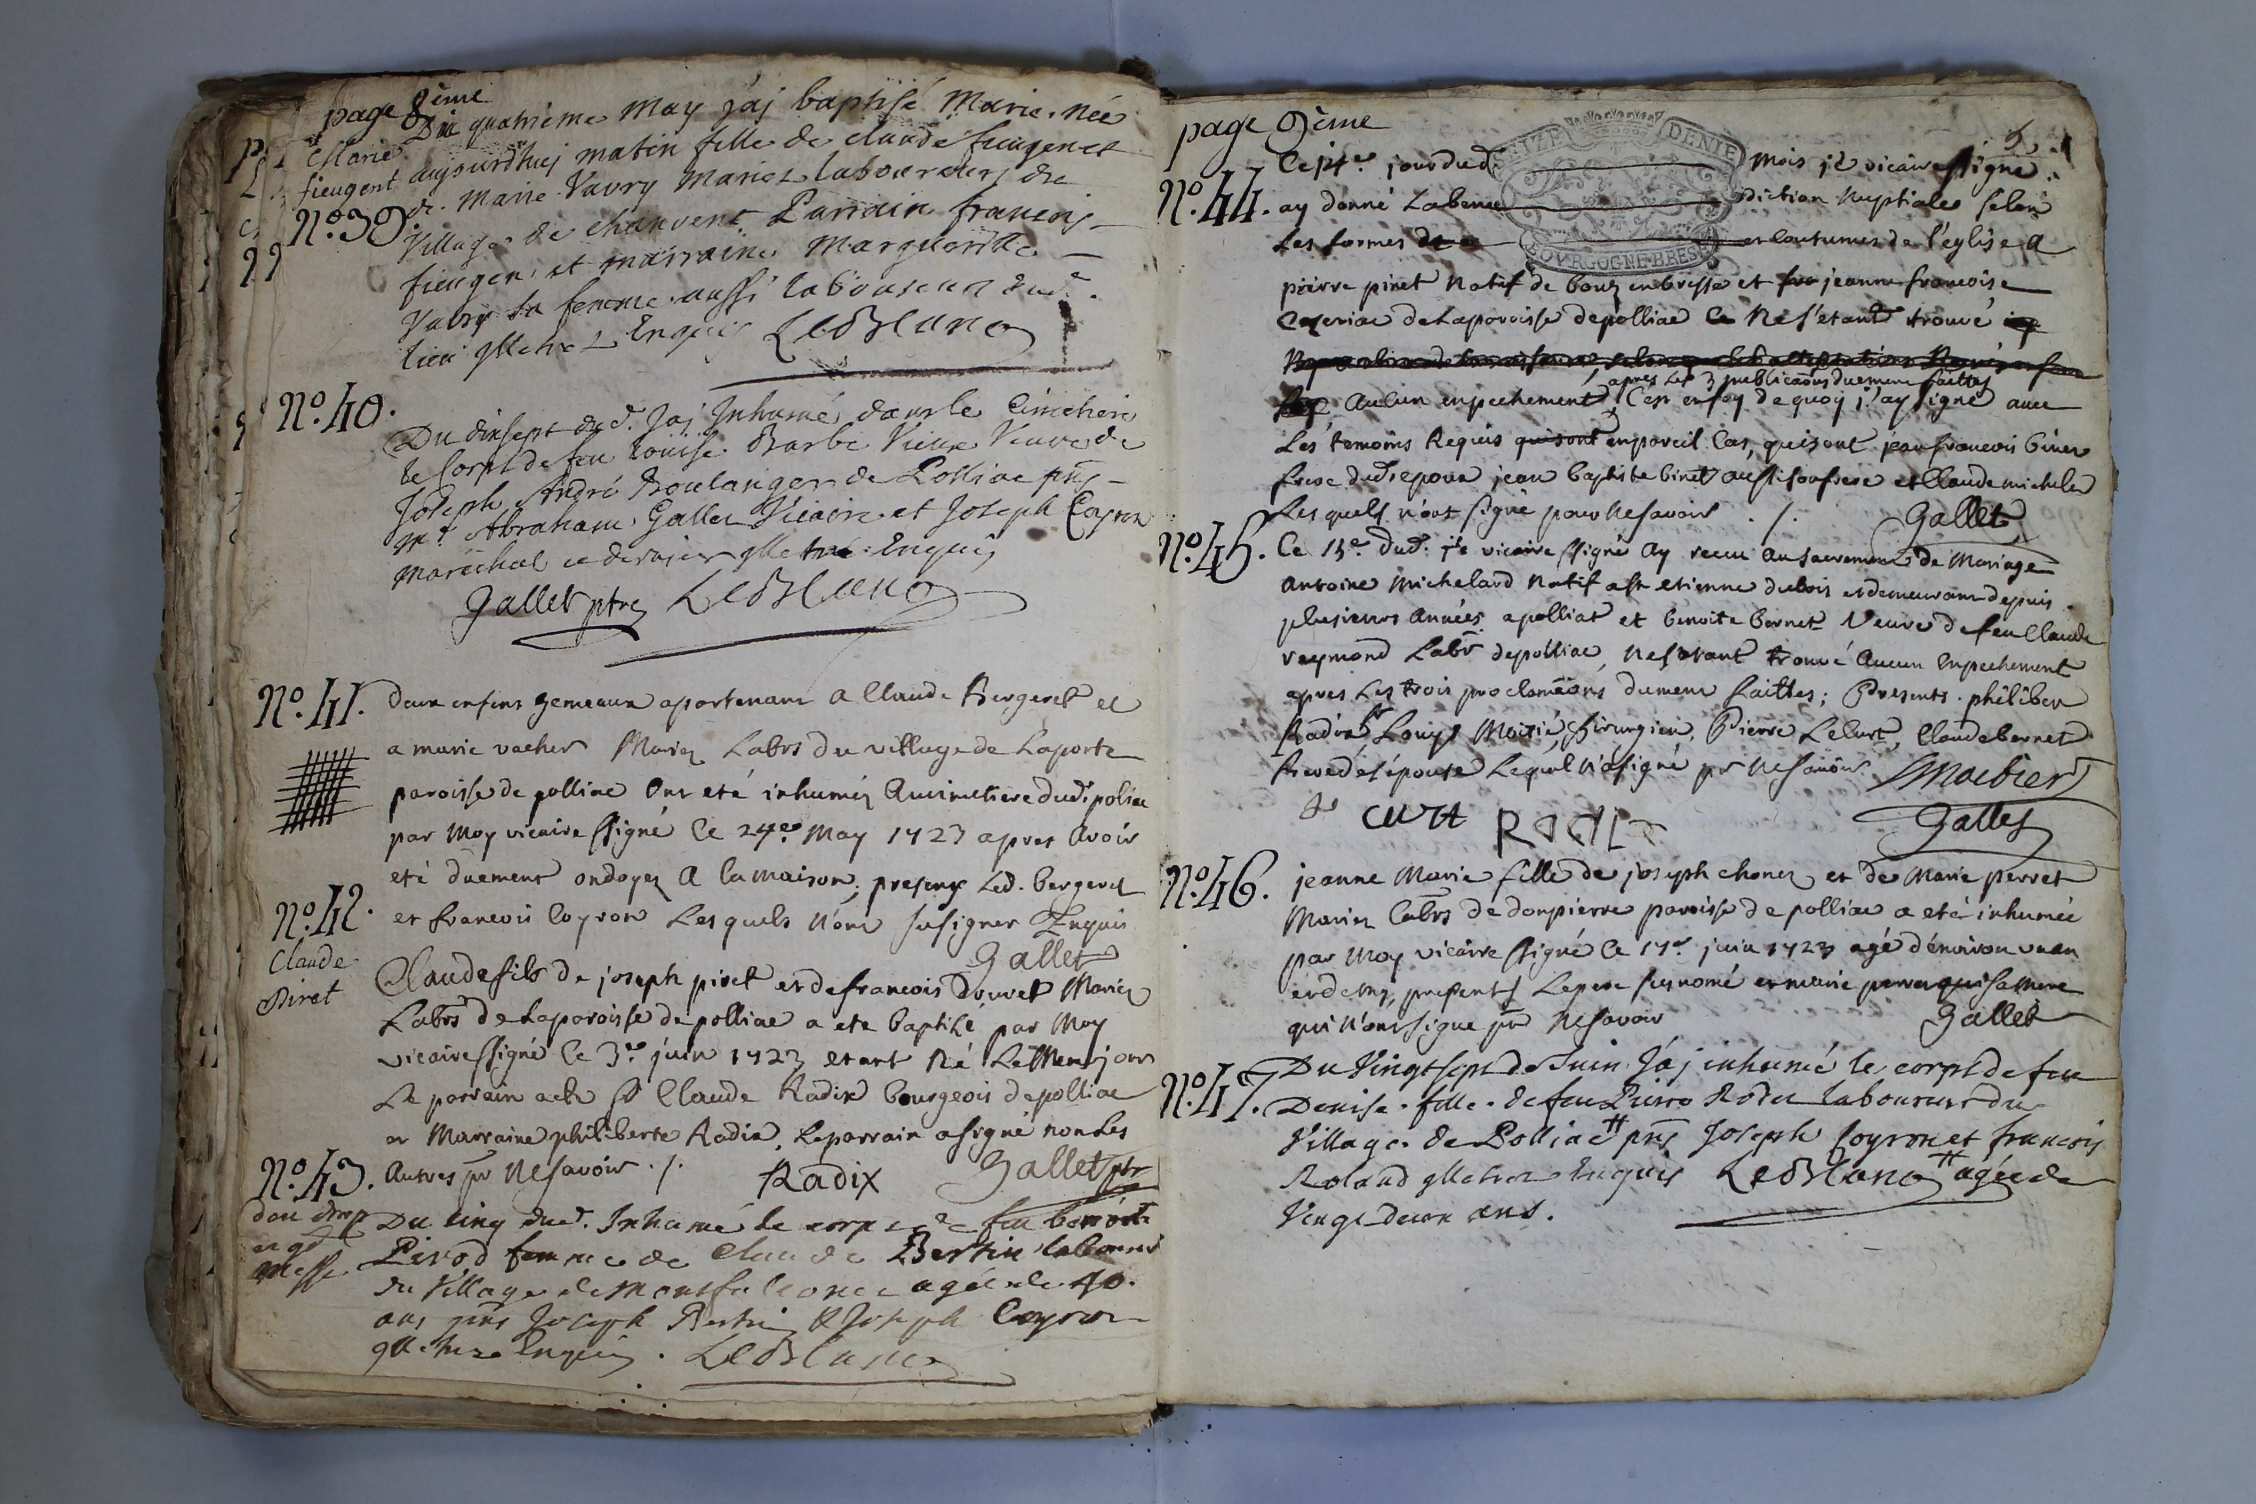 page 8ème
Marie
fieugent
N.o 39.
Du quatrième May jaj baptisé Marie née
aujourdhuj matin fille de claude fieugent et
de Marie Vavry Mariez laboureurs du
Village de chanvent Parrain francois
fieugen et marraine Marguerite
Vavry sa femme aussi laboureur dud.
lieu Enquis LeBlanc
N.o 40.
Du dixsept dud. Jaj Inhumé dans le Cimetiere
le Corps de feu Louise Barbe Vieux Veuve de
Joseph André Boulanger de Polliac pns
Mr. Abraham Gallet Vicaire et Joseph Coyron
marechal ce dernier Enquis
Gallet ptre LeBlanc
N.o 41.
Deux enfens gemeaux apartenant a Claude Bergeret et
a marie vacher Mariez Labrs du village de Laporte
paroisse de polliac Ont eté inhumés au cimetiere dud. poliac
par Moy vicaire ssigné Ce 24e May 1723 apres avoir
eté duement ondoyez A la maison, presens Led. bergeret
et francois Coyron Lesquels N'ont su signer Enquis
Gallet
N.o 42.
Claude
Piret
Claude fils de joseph piret et de francois Druvet Mariez
Labrs de Laparoisse de polliac a eté baptisé par Moy
vicaire ssigné Ce 3e juin 1723 etant Né Le Meme jour
Le parrain a eté Sr Claude Radix bourgeois de polliac
et Marraine philiberte Radix, Le parrain a signé non Les
autres pr Ne savoir ./. Radix Gallet ptr
N.o 43.
Messe
Du cinq dud. Inhumé le corps de feu benoite
Pirod femme de Claude Bertin laboureur
du Village de Montfalconet agée de 40.
ans pns Joseph Bertin & Joseph Coyron
Enquis. LeBlanc
page 9ème
5
SEIZE DENIE
BOURGOGNE BRESSE
N.o 44.
Ce 14e jour dud. Mois je vicaire ssigné
ay donné Labene diction Nuptiale selon
Les formes et Coutumes de l'eglise a
pierre piret Natif de bourg en bresse et jeanne francoise
Cazeriac de Laparoisse de polliac Ne s'etant trouvé
apres Les 3 publications duement faittes
Aucun enpechement, C'est en foy de quoy j'ay signé avec
Les temoins Requis qui sont en pareil Cas, qui sont jean francois binet
frere dud. epoux jean baptiste binet aussi son frere et Claude michelet
Lesquels n'ont signé pour Ne savoir ./. Gallet
N.o 45.
Ce 15e dud. je vicaire ssigné Ay recu au sacrement de Mariage
Antoine Michelard Natif a st etienne du bois et demeurant depuis
plusieurs Années a polliat et benoite bernet Veuve de feu Claude
raymond Labr de polliac, Ne s'etant trouvé Aucun Enpechement
apres Les trois proclamations dument faittes; Presents philibert
Radix Sr Louys Moitié, Pierre Lecurt, Claude bernet
frere de l'épouse Lequel n'a signé pr Ne savoir
Gallet
N.o 46.
jeanne Marie fille de joseph chonez et de Marie perret
Mariez Labrs de donpierre paroisse de polliac a eté inhumée
par Moy vicaire ssigné Ce 17e juin 1723 agé d'environ un an
et demy, presents Le pere susnomé et marie perret qui sa Mere
qui N'ont signe pr Ne savoir Gallet
N.o 47.
Du Vingtsept de Juin Jaj inhumé le corps de feu
Denise fille de feu Pierre Rodet laboureur du
Village de Polliac # pns Joseph Coyron et francois
Roland Enquis LeBlanc # agée de
Vingt deux ans.